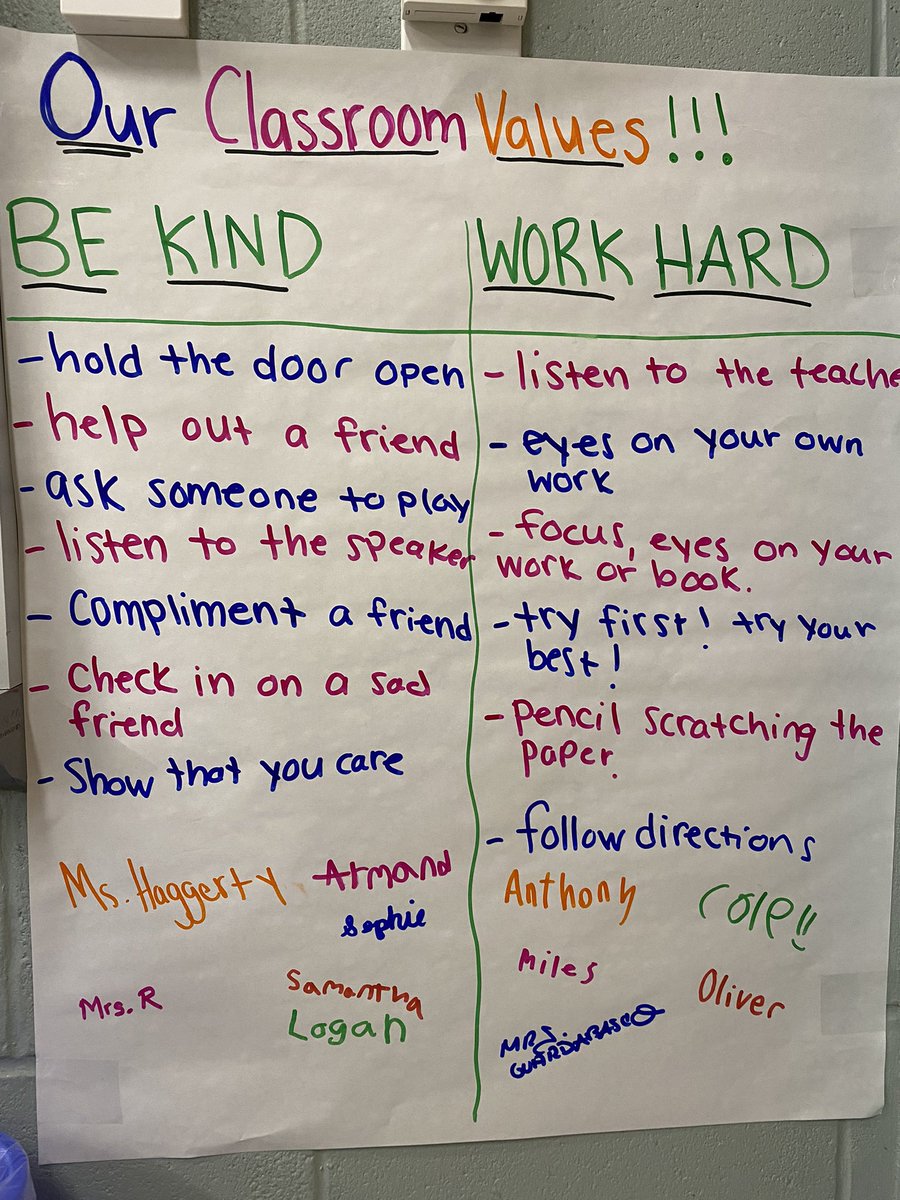 Our Classroom Values!!!
BE KIND
- hold the door open
- help out a friend
- ask someone to play
- listen to the speaker
- Compliment a friend
- Check in on a sad
friend
- Show that you care
Ms. Haggerty
Armand
Sophie
Mrs. R
Samantha
Logan
WORK HARD
- listen to the teache
- eyes on your own
work
- focus, eyes on your
work or book.
- try first! try your
best!
- Pencil scratching the
paper.
- follow directions
Anthony
Cole!!
Miles
Oliver
MRS.
GUARDABASCO